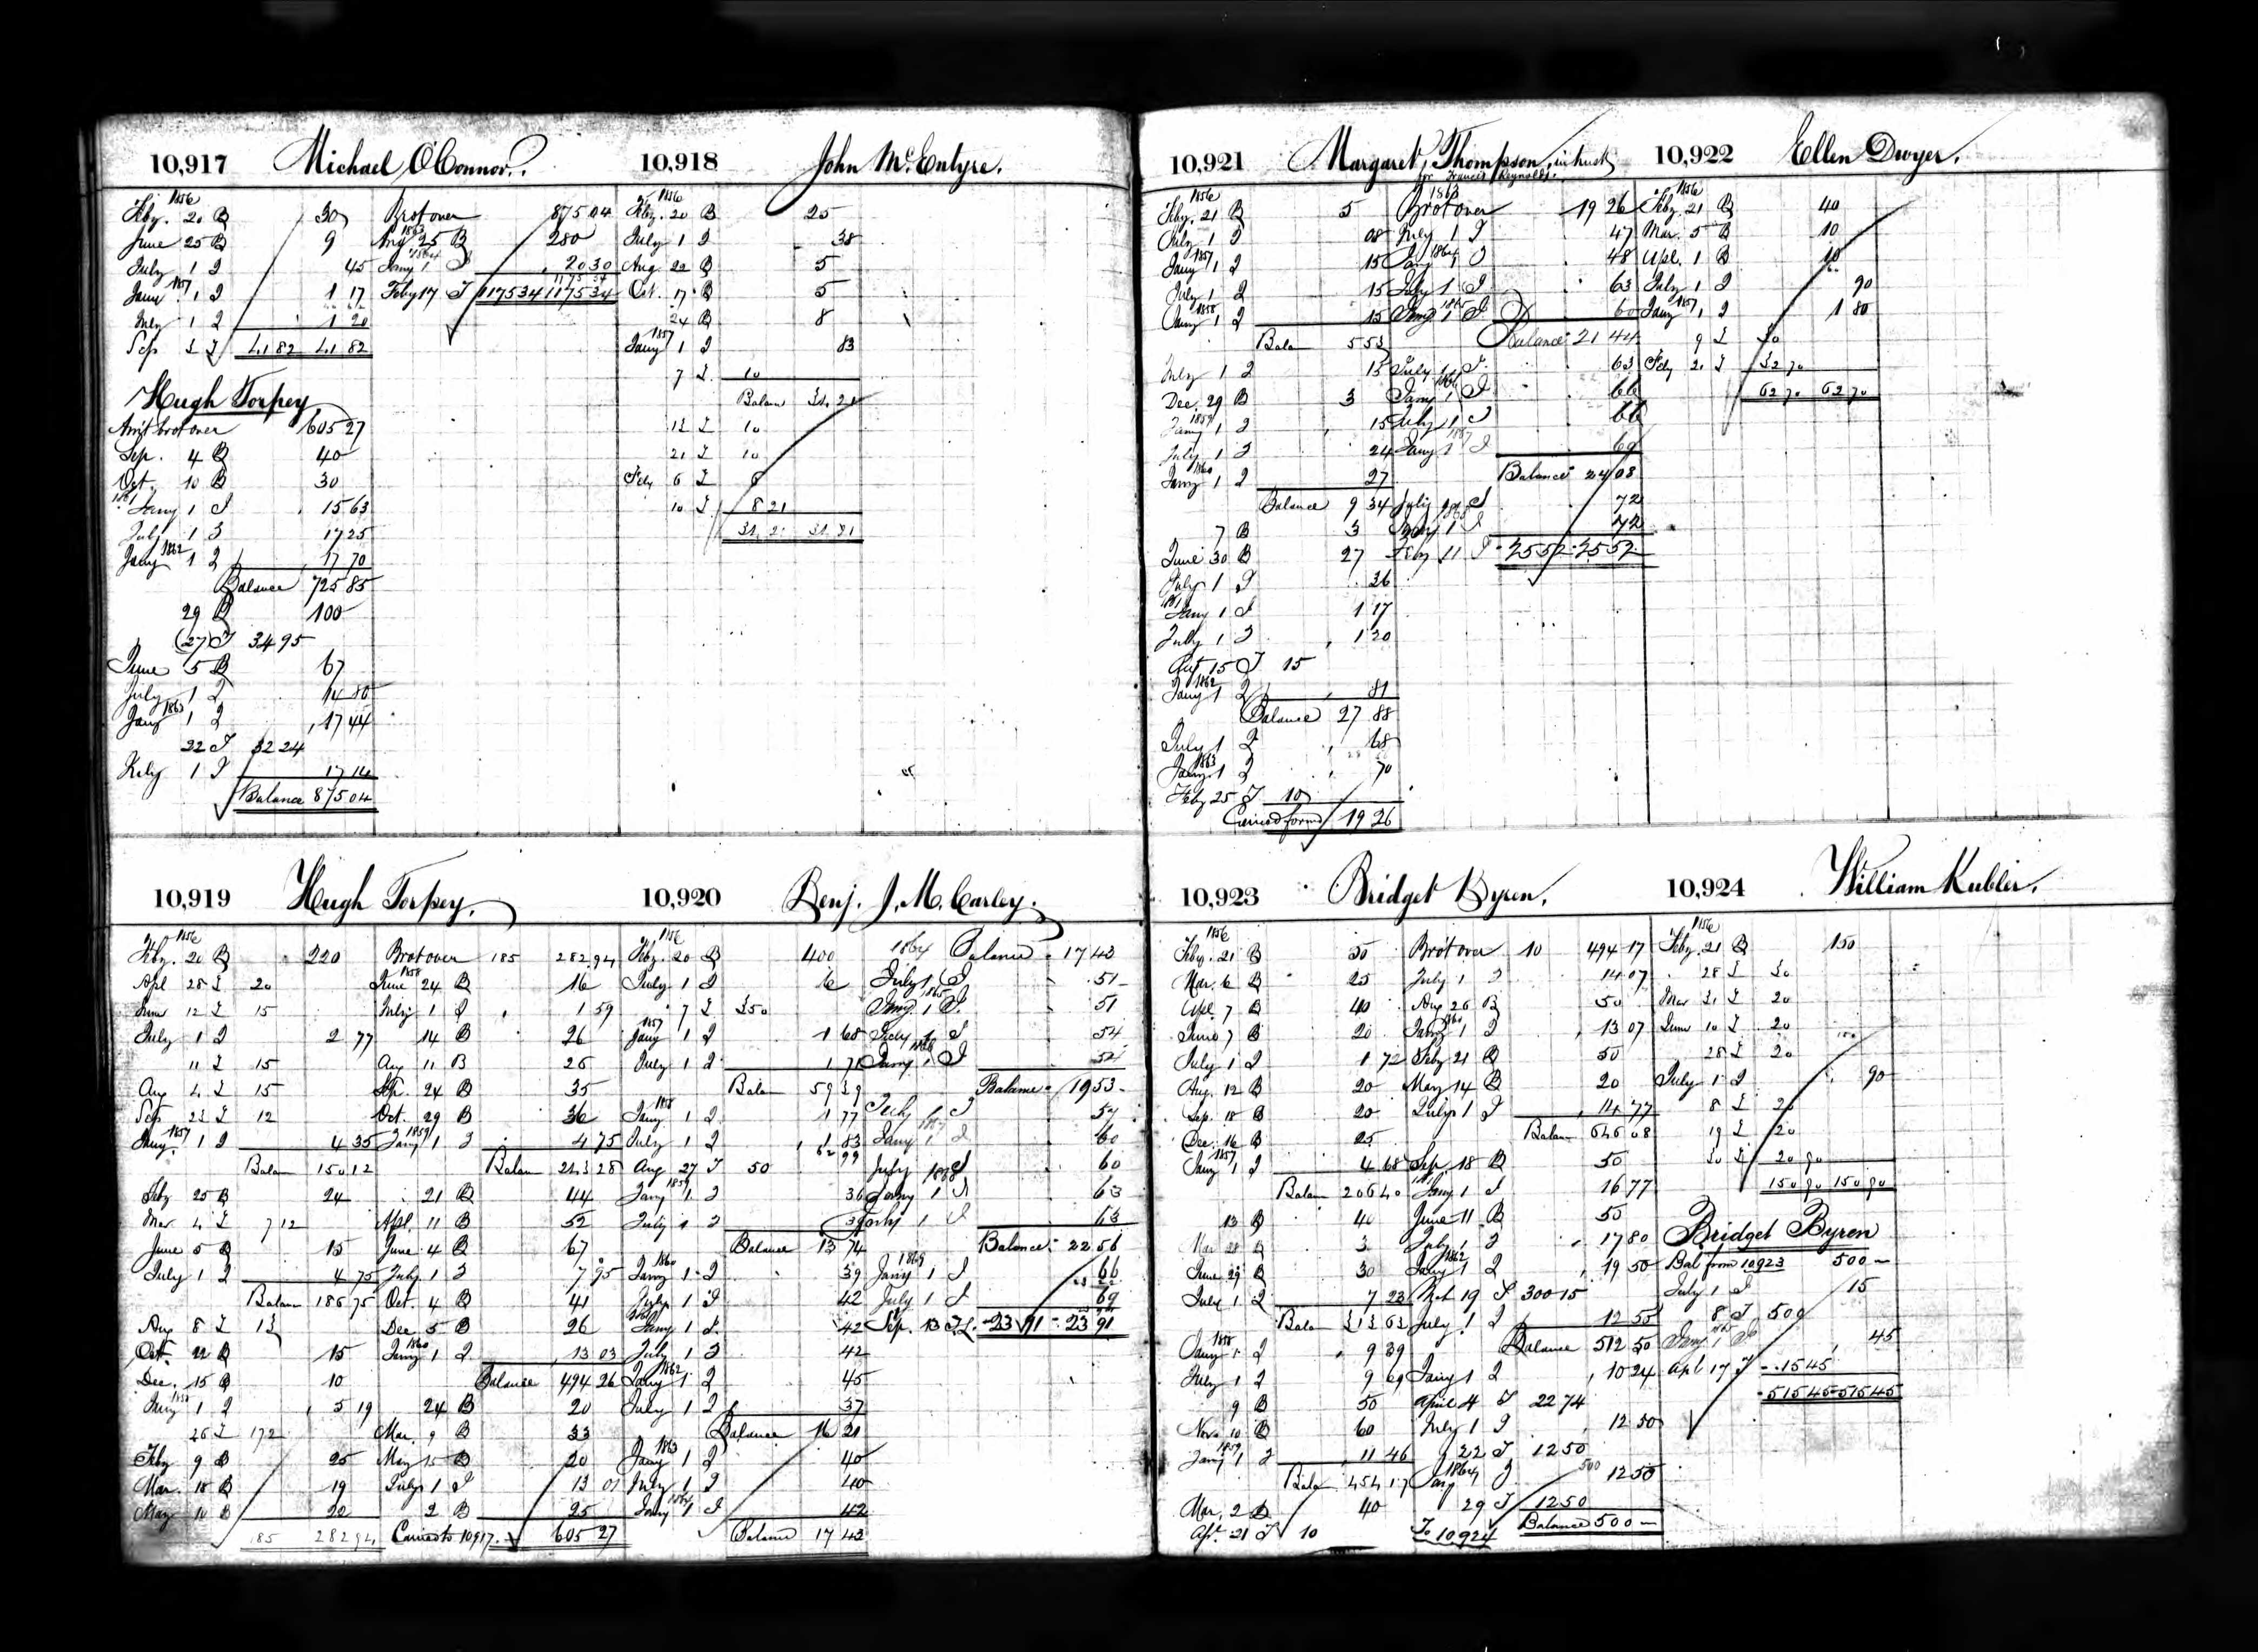 10,917 Michael O'Connor.
1856
Feby. 20 B 30
June 25 B 9
July 1 I 45
1857
Jany. 1 I 1 17
July 1 I 1 20
Sep 41 82 41 82
Hugh Torpey
Am't brot over 605 27
Sep. 4 B 40
Oct. 10 B 30
1861
Jany 1 I 15 63
July 1 I 17 25
Jany 1862 1 I 17 70
Balance 725 85
29 B 100
(27) I 34 95
June 5 B 67
July 1 I 14 80
1863
Jany 1 I 17 44
22 I 32 24
July 1 I 17 14
Balance 875 04
Brot over 875 04
1863
Aug 25 B 280
1864
Jany 1 I 20 30
Feby 17 I 1175 34 1175 34
10,918 John McEntyre.
1856
Feby. 20 B 25
July 1 I 38
Aug. 22 B 5
Oct. 17 B 5
24 B 8
1857
Jany 1 I 83
7 I 10
Balance 34 21
I 10
21 I 10
Feby 6 I 6
10 I 8 21
10,919 Hugh Torpey.
1856
Feby. 20 B 220
Apl 28 I 20
June 12 I 15
July 1 I 2 77
11 I 15
Aug 4 I 15
Sep 23 I 12
1857
Jany. 1 I 4 35
Balan 150 12
Feby 25 B 24
Mar. 4 I 7 12
June 5 B 15
July 1 I 4 75
Balan 186 75
Aug 8 I 13
Oct. 22 B 15
Dec. 15 B 10
1858
Jany 1 I 5 19
26 I 172
Feby 9 B 25
Mar. 18 B 19
May 10 B 22
185 282 94
Brot over 185 282 94
1858
June 24 B 16
July 1 I 1 59
14 B 26
Aug 11 B 26
Sep. 24 B 35
Oct. 29 B 36
1859
Jany 1 I 4 75
Balan 243 28
21 B 44
Apl. 11 B 52
June 4 B 67
July 1 I 7 95
Oct. 4 B 41
Dec. 5 B 26
1860
Jany 1 I 13 03
Balance 494 26
24 B 20
Mar. 9 B 33
May 15 B 20
July 1 I 13 01
2 B 25
Carried to 10917. 605 27
10,920 Benj. J. McCarley.
1856
Feby. 20 B 400
July 1 I 6
7 I 350
1857
Jany 1 I 1 68
July 1 I 1 71
Balan 59 39
1858
Jany 1 I 1 77
July 1 I 1 83
62 99
Aug 27 I 50
1859
Jany 1 I 36
July 1 I 39
Balance 13 74
1860
Jany 1 I 39
July 1 I 42
Jany 1 I 42
July 1 I 42
1862
Jany 1 I 45
July 1 I 37
Balance 16 21
1863
Jany 1 I 40
July 1 I 40
1864
Jany 1 I 42
Balance 17 43
1864 Balance 17 43
July 1 I 51
1865
Jany 1 I 51
July 1 I 54
1866
Jany 1 I 54
Balance 19 53
July 1 I 57
1867
Jany 1 I 60
July 1868 I 60
Jany 1 I 63
July 1 I 63
Balance 22 56
1869
Jany 1 I 66
July 1 I 69
Sep. 13 I 23 91 23 91
10,921 Margaret Thompson, in trust
for Francis Reynolds.
1856
Feby. 21 B 5
July 1 I 08
1857
Jany 1 I 15
July 1 I 15
1858
Jany 1 I 15
Balan 5 53
July 1 I 15
Dec. 29 B 3
1859
Jany 1 I 15
July 1 I 24
1860
Jany 1 I 27
Balance 9 34
7 B 3
June 30 B 27
July 1 I 36
1861
Jany 1 I 1 17
July 1 I 1 20
15 I 15
1862
Jany 1 I 81
Balance 27 88
July 1 I 68
1863
Jany 1 I 70
Feby 25 I 10
Carried forwd 19 26
1863
Brot over 19 26
July 1 I 47
1864
Jany 1 I 48
July 1 I 63
1865
Jany 1 I 60
Balance 21 44
July 1 I 63
1866
Jany 1 I 66
July 1 I 66
1867
Jany 1 I 69
Balance 24 08
July 1 I 72
1868
Jany 1 I 72
Feby 11 I 25 52 25 52
10,922 Ellen Dwyer.
1856
Feby. 21 B 40
Mar. 5 B 10
Apl. 1 B 10
July 1 I 90
1857
Jany 1 I 1 80
9 I 30
Feby 2 I 32 70
62 70 62 70
10,923 Bridget Byren.
1856
Feby. 21 B 50
Mar. 6 B 25
Apl 7 B 40
June 7 B 20
July 1 I 1 72
Aug. 12 B 20
Sep. 18 B 20
Dec. 16 B 25
1857
Jany 1 I 4 68
Balan 206 40
13 B 40
Mar 28 B 3
June 29 B 30
July 1 I 7 23
Balan 313 63
1858
Jany 1 I 9 39
July 1 I 9 69
9 B 50
Nov. 10 B 60
1859
Jany 1 I 11 46
Balan 454 17
Mar. 2 B 40
Apl. 21 I 10
Brot over 10 494 17
July 1 I 14 07
Aug 26 B 50
1860
Jany 1 I 13 07
Feby 21 B 50
May 14 B 20
July 1 I 14 77
Balan 646 08
Sep. 18 B 50
1861
Jany 1 I 16 77
June 11 B 50
July 1 I 17 80
1862
Jany 1 I 19 50
19 I 300 15
July 1 I 12 55
Balance 512 50
Jany 1 I 10 24
April 4 I 22 74
July 1 I 12 50
22 I 12 50
1864
Jany I 12 50
29 I 12 50
To 10924 Balance 500
10,924 William Kubler.
1856
Feby. 21 B 150
28 I 30
Mar 31 I 20
June 10 I 20
28 I 20
July 1 I 90
8 I 20
19 I 20
30 I 20 90
150 90 150 90
Bridget Byron
Bal from 10923 500
July 1 I 15
8 I 500
Jany 1 I 45
Apl 17 I 15 45
515 45 515 45